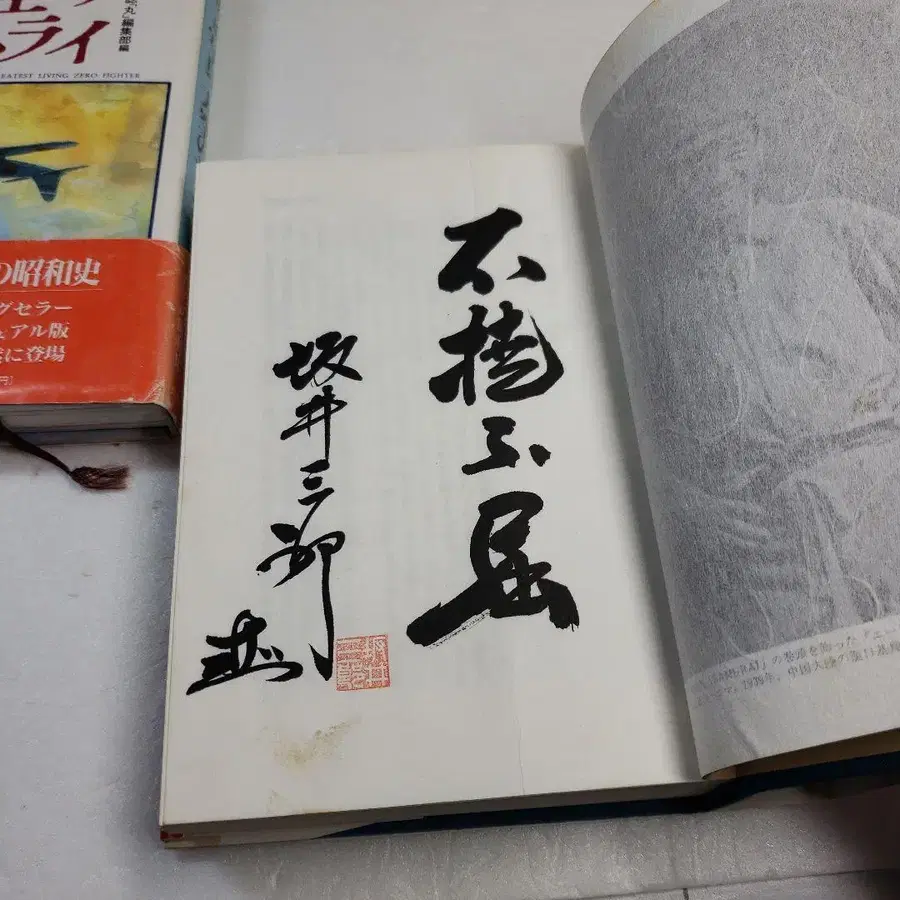 丸」編集部 編
ライ
EATEST LIVING ZERO FIGHTER
の昭和史
グセラー
ュアル版
に登場
円]
不撓不屈
坂井三郎
の巻頭を飾った『エー
1939年、中国大陸の漢口基